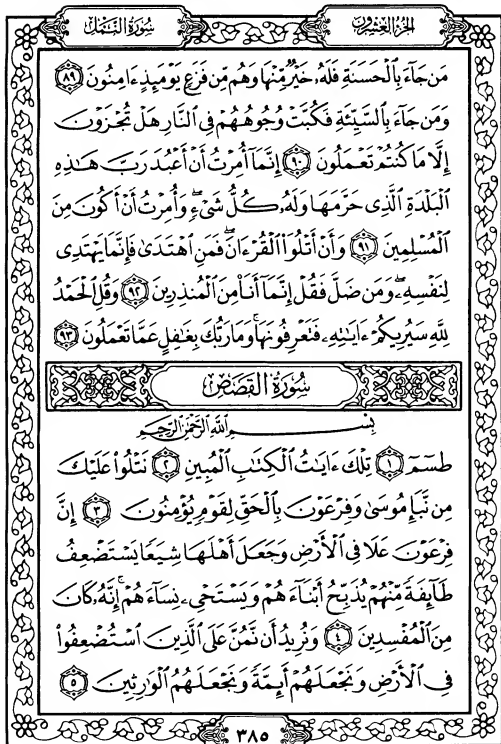 الجزء العشرون
سورة النمل
مَن جَآءَ بِٱلْحَسَنَةِ فَلَهُۥ خَيْرٌ مِّنْهَا وَهُم مِّن فَزَعٍ يَوْمَئِذٍ ءَامِنُونَ ٨٩
وَمَن جَآءَ بِٱلسَّيِّئَةِ فَكُبَّتْ وُجُوهُهُمْ فِى ٱلنَّارِ هَلْ تُجْزَوْنَ
إِلَّا مَا كُنتُمْ تَعْمَلُونَ ٩٠ إِنَّمَآ أُمِرْتُ أَنْ أَعْبُدَ رَبَّ هَٰذِهِ
ٱلْبَلْدَةِ ٱلَّذِى حَرَّمَهَا وَلَهُۥ كُلُّ شَىْءٍ ۖ وَأُمِرْتُ أَنْ أَكُونَ مِنَ
ٱلْمُسْلِمِينَ ٩١ وَأَنْ أَتْلُوَا۟ ٱلْقُرْءَانَ ۖ فَمَنِ ٱهْتَدَىٰ فَإِنَّمَا يَهْتَدِى
لِنَفْسِهِۦ ۖ وَمَن ضَلَّ فَقُلْ إِنَّمَآ أَنَا۠ مِنَ ٱلْمُنذِرِينَ ٩٢ وَقُلِ ٱلْحَمْدُ
لِلَّهِ سَيُرِيكُمْ ءَايَٰتِهِۦ فَتَعْرِفُونَهَا ۚ وَمَا رَبُّكَ بِغَٰفِلٍ عَمَّا تَعْمَلُونَ ٩٣
سورة القصص
بِسْمِ ٱللَّهِ ٱلرَّحْمَٰنِ ٱلرَّحِيمِ
طسٓمٓ ١ تِلْكَ ءَايَٰتُ ٱلْكِتَٰبِ ٱلْمُبِينِ ٢ نَتْلُوا۟ عَلَيْكَ
مِن نَّبَإِ مُوسَىٰ وَفِرْعَوْنَ بِٱلْحَقِّ لِقَوْمٍ يُؤْمِنُونَ ٣ إِنَّ
فِرْعَوْنَ عَلَا فِى ٱلْأَرْضِ وَجَعَلَ أَهْلَهَا شِيَعًا يَسْتَضْعِفُ
طَآئِفَةً مِّنْهُمْ يُذَبِّحُ أَبْنَآءَهُمْ وَيَسْتَحْىِۦ نِسَآءَهُمْ ۚ إِنَّهُۥ كَانَ
مِنَ ٱلْمُفْسِدِينَ ٤ وَنُرِيدُ أَن نَّمُنَّ عَلَى ٱلَّذِينَ ٱسْتُضْعِفُوا۟
فِى ٱلْأَرْضِ وَنَجْعَلَهُمْ أَئِمَّةً وَنَجْعَلَهُمُ ٱلْوَٰرِثِينَ ٥
٣٨٥